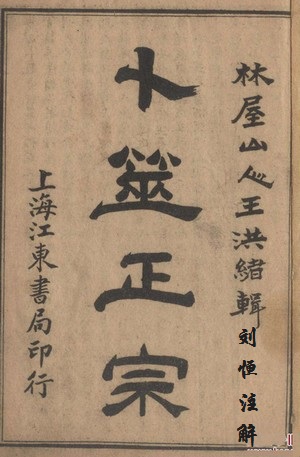 林屋山人王洪緒輯
刘恒注解
卜筮正宗
上海江東書局印行